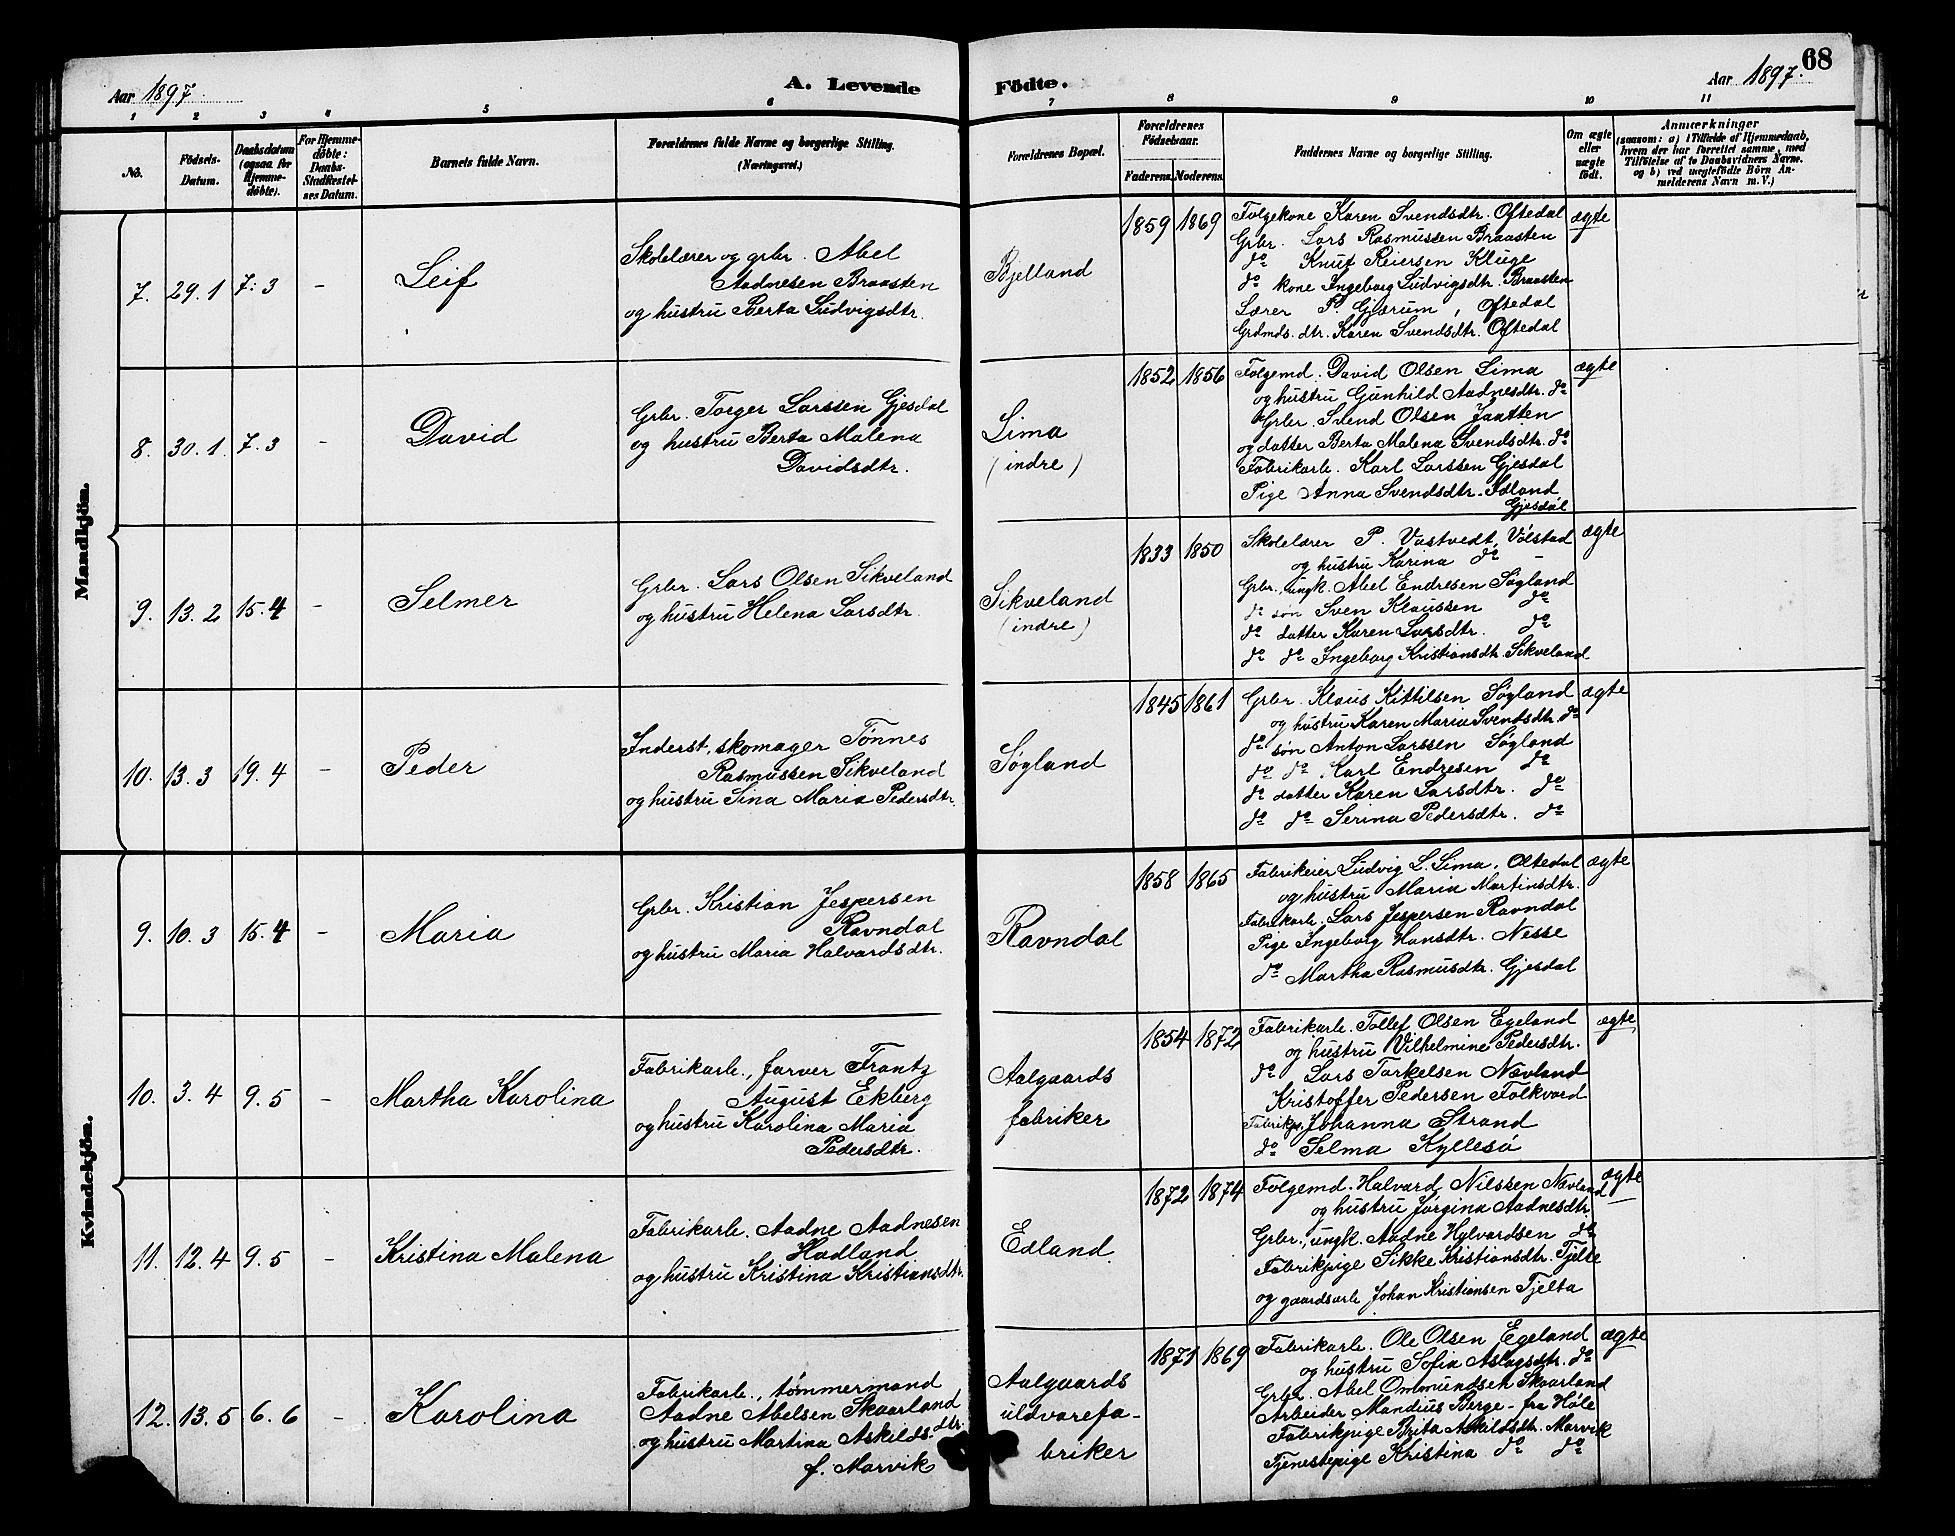 68
Aar 1897.
A. Levende Födte.
Aar 1897.
1 2 3 4 5 6 7 8 9 10 11
No.
Födsels-
Datum.
Daabsdatum
(ogsaa for
Hjemme-
döbte).
For Hjemme-
döbte:
Daabs-
Stadfæstel-
ses Datum.
Barnets fulde Navn.
Forældrenes fulde Navne og borgerlige Stilling.
(Næringsvei.)
Forældrenes Bopæl.
Forældrenes
Födselsaar.
Faderens. Moderens.
Faddernes Navne og borgerlige Stilling.
Om ægte
eller
uægte
födt.
Anmærkninger
(saasom: a) i Tilfælde af Hjemmedaab,
hvem der har forrettet samme, med
Tilföielse af to Daabsvidners Navne.
og b) ved uægtefödte Börn An-
melderens Navn m. V.)
Mandkjön.
7. 29.1 7.3 - Leif
Skolelærer og grbr. Abel
Aadnesen Braasten
og hustru Berta Ludvigsdtr.
Bjelland
1859 1869
Følgekone Karen Svendsdtr. Oftedal
Grbr. Lars Rasmussen Braasten
do Knut Reiersen Kluge
do kone Ingeborg Ludvigsdtr. Braasten
Lærer P. Gjærum, Oftedal
Grdmds. dtr. Karen Svendsdtr. Oftedal
ægte
8. 30.1. 7.3 - David
Grbr. Torger Larssen Gjesdal
og hustru Berta Malena
Davidsdtr.
Lima
(indre)
1852 1856
Følgemd. David Olsen Lima
og hustru Gunhild Aadnesdtr. do
Grbr. Svend Olsen Jaatten
og datter Berta Malena Svendsdtr. do
Fabrikarb. Karl Larssen Gjesdal
Pige Anna Svendsdtr. Edland
Gjesdal
ægte
9. 13.2 15.4 - Selmer
Grbr. Lars Olsen Sikveland
og hustru Helena Larsdtr.
Sikveland
(indre)
1833 1850
Skolelærer P. Vastvedt, Vølstad
og hustru Karina do -
Grbr. ungk. Abel Endresen Søgland
do søn Sven Klaussen do
do datter Karen Larsdtr. do
do do Ingeborg Kristiansdtr. Sikveland
ægte
10. 13.3 19.4 - Peder
Inderst, skomager Tønnes
Rasmussen Sikveland
og hustru Sina Maria Pedersdtr.
Søgland
1845 1861
Grbr. Klaus Kittilsen Søgland
og hustru Karen Maria Svendsdtr. do
do søn Anton Larssen Søgland
do do Karl Endresen do
do datter Karen Larsdtr. do
do do Serina Pedersdtr. do
ægte
Kvindekjön.
9. 10.3 15.4 - Maria
Grbr. Kristian Jespersen
Ravndal
og hustru Maria Halvardsdtr.
Ravndal
1858 1865
Fabrikeier Ludvig L. Lima, Oltedal
og hustru Maria Martinsdtr.
Fabrikarb. Lars Jespersen Ravndal
Pige Ingeborg Hansdtr. Nesse
do Martha Rasmusdtr. Gjesdal
ægte
10. 3.4 9.5 - Martha Karolina
Fabrikarb., farver Frantz
August Ekberg
og hustru Karolina Maria
Pedersdtr.
Aalgaards
fabriker
1854 1872
Fabrikarb. Tollef Olsen Egeland
og hustru Vilhelmine Pedersdtr.
do Lars Torkelsen Nævland
Kristoffer Pedersen Folkvord
Fabrikp. Johanna Strand
do Selma Kyllesø
ægte
11. 12.4 9.5 - Kristina Malena
Fabrikarb. Aadne Aadnesen
Hadland
og hustru Kristina Kristiansdtr.
Edland
1872 1874
Følgemd. Halvard Nilssen Nævland
og hustru Jørgina Aadnesdtr.
Grbr., ungk. Aadne Halvardsen do
Fabrikpige Sikke Kristiansdtr. Tjelta
og gaardsarb Johan Kristiansen Tjelta
ægte
12. 13.5 6.6 - Karolina
Fabrikarb., tømmermand
Aadne Abelsen Skaarland
og hustru Martina Askilds dtr.
f. Marvik
Aalgaards
uldvarefa-
briker
1871 1869
Fabrikarb. Ole Olsen Egeland
og hustru Sofia Aslagsdtr. do
Grbr. Abel Ommundsen Skaarland
Arbeider Mandius Berge - fra Høle
Fabrikpige Brita Askildsdtr. Marvik
Tjenestepige Kristina do do
ægte